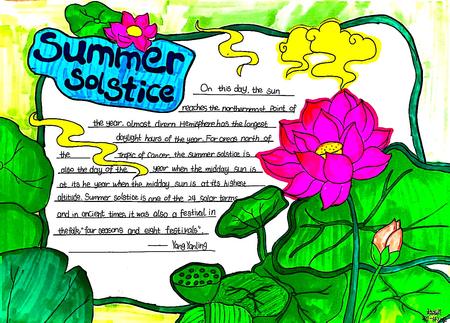 Summer
Solstice
On this day, the sun
reaches the northernmost Point of
the year. almost diren Hemisphere has the longest
daylight hours of the year. For areas north of
the Tropic of Cancer. the summer solstice is
also the day of the year when the midday sun is
at its he year when the midday sun is at its highest
altitude. Summer solstice is one of the 24 solar terms
and in ancient times, it was also a festival in
the folk "four seasons and eight festivals".
—— Yang Yanling